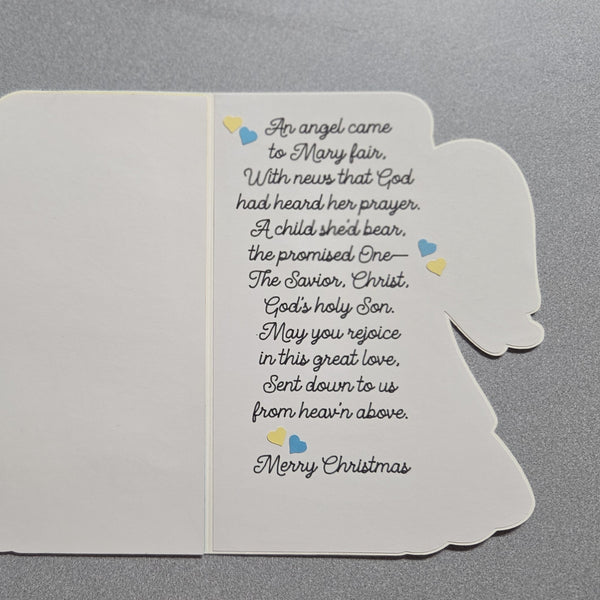 An angel came
to Mary fair,
With news that God
had heard her prayer.
A child she'd bear,
the promised One—
The Savior, Christ,
God's holy Son.
May you rejoice
in this great love,
Sent down to us
from heav'n above.
Merry Christmas